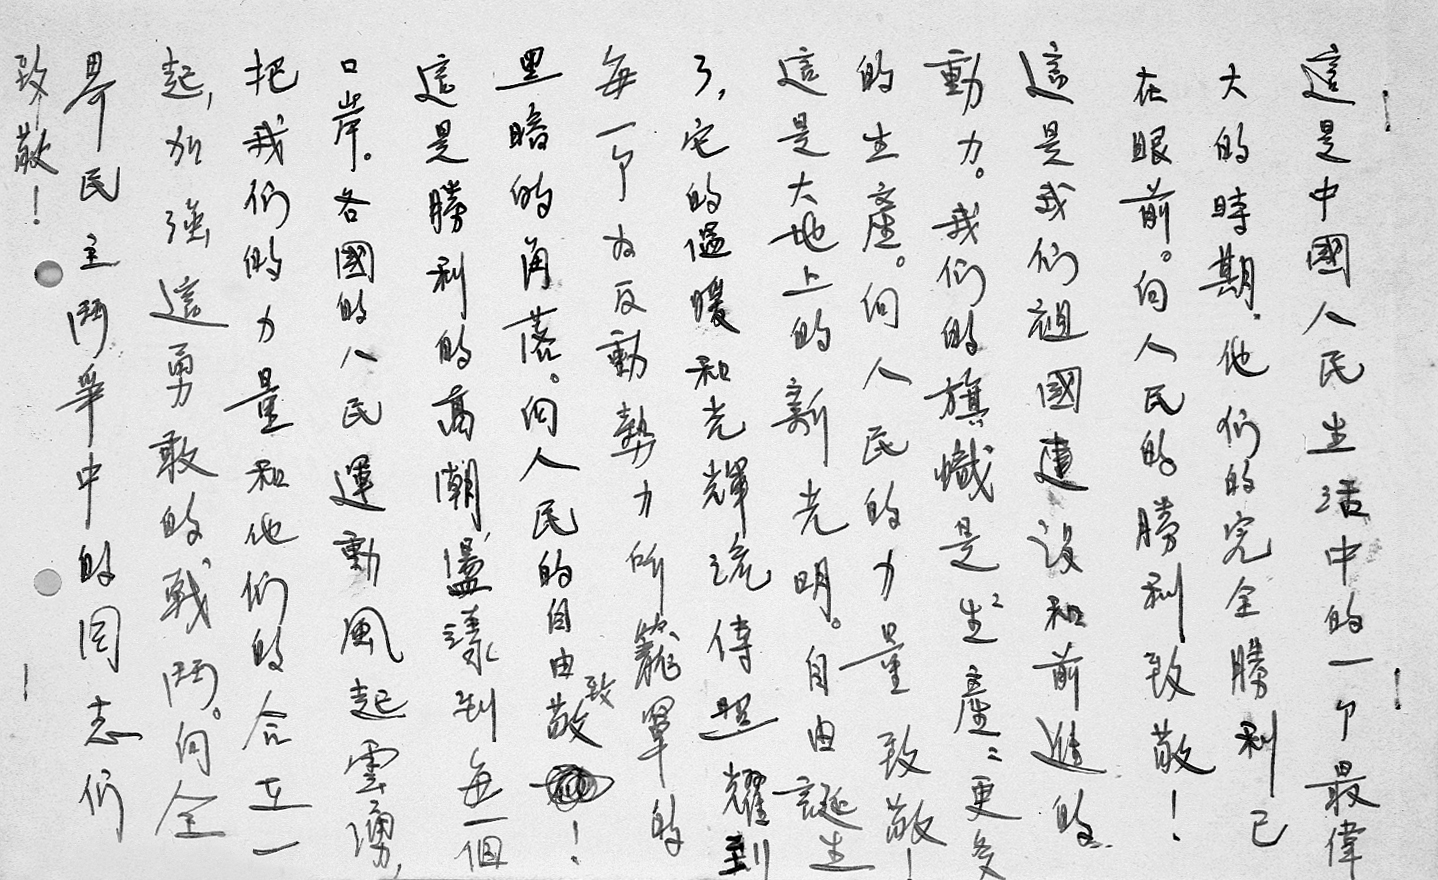 這是中國人民生活中的一个最偉
大的時期。他们的完全勝利已
在眼前。向人民的勝利致敬！
這是我们祖國建设和前進的
動力。我们的旗幟是生産：更多
的生産。向人民的力量致敬！
這是大地上的新光明。自由誕生
了，它的温暖和光輝流傳照耀到
每一个为反動勢力所籠罩的
黑暗的角落。向人民的自由致敬！
這是勝利的高潮，盪漾到每一個
口岸。各國的人民運動風起雲湧，
把我们的力量和他们的合在一
起，加強這勇敢的戰鬥。向全
界民主鬥爭中的同志们
致敬！